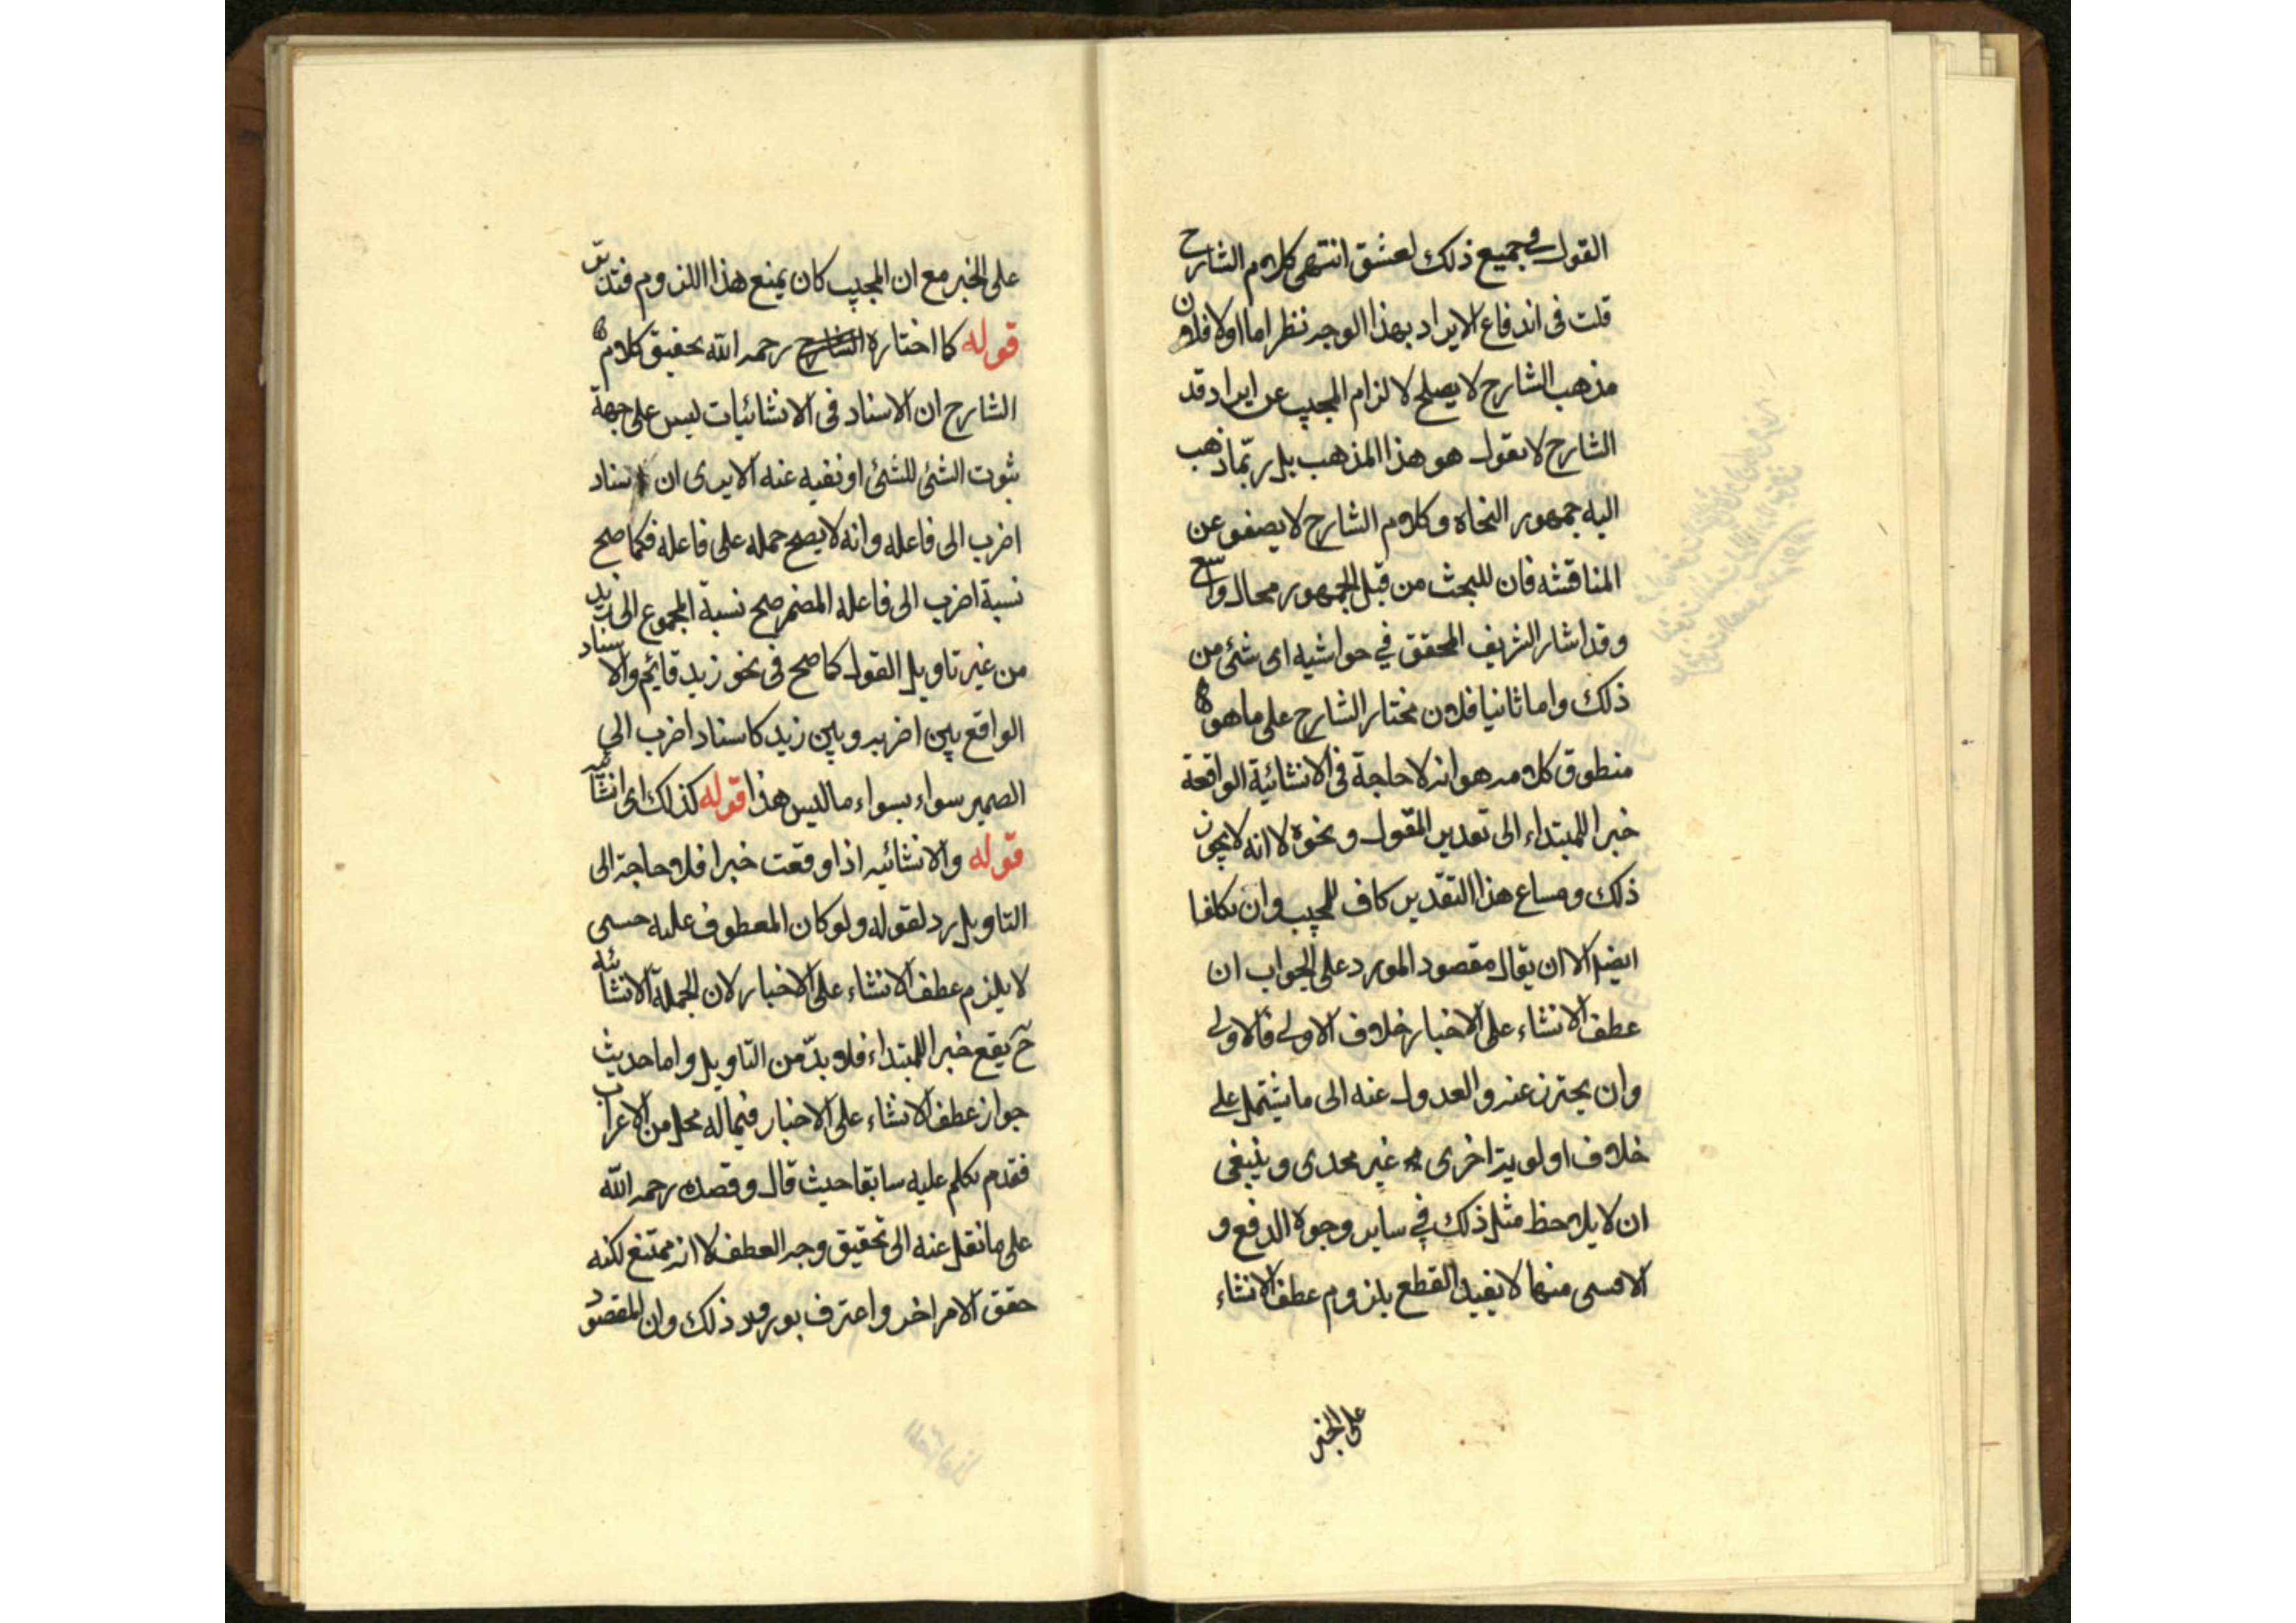 القول في جميع ذلك لعشق انتهى كلام الشارح
قلت فى اندفاع الايراد بهذا الوجه نظر اما اولا فلان
مذهب الشارح لا يصلح لالزام المجيب عن ايراد قد
الشارح لا نقول هو هذا المذهب بل ربّما ذهب
اليه جمهور النحاة وكلام الشارح لا يصفو عن
المناقشه فان للبحث من قبل الجمهور مجال واسع
وقد اشار الشريف المحقق في حواشيه اى شئ من
ذلك واما ثانيا فلان مختار الشارح على ما هو
منطوق كلامه هو انه لا حاجة فى الانشائية الواقعة
خبرا للمبتداء الى تقدير المقول ونحوه لا انه لا يجوز
ذلك ومساغ هذا التقدير كاف للمجيب وان تكلفا
ايضا الا ان يقال مقصود المورد على الجواب ان
عطف الانشاء على الاخبار خلاف الاولى فالاولى
وان يحترز عنه والعدول عنه الى ما يشتمل على
خلاف اولوية اخرى غير مجدى وينبغى
ان لا يلاحظ مثل ذلك في ساير وجوه الدفع و
الا منها لا يفيد القطع بلزوم عطف الانشاء
على الخبر
على الخبر مع ان المجيب كان يمنع هذا اللزوم فتدبر
قوله كما اختاره الشارح رحمه الله تحقيق كلام
الشارح ان الاسناد فى الانشائيات ليس على جهة
ثبوت الشئ للشئ او نفيه عنه الا يرى ان اسناد
اضرب الى فاعله وانه لا يصح حمله على فاعله فكما صح
نسبة اضرب الى فاعله المضمر صح نسبة المجموع الى زيد
من غير تاويل القول كما صح فى نحو زيد قايم والاسناد
الواقع بين اضربه وبين زيد كاسناد اضرب الى
الضمير سواء بسواء ما ليس هذا قوله كذلك اى انشائيه
قوله والانشائيه اذا وقعت خبرا فلا حاجة الى
التاويل رد لقوله ولو كان المعطوف عليه حسبى
لا يلزم عطف الانشاء على الاخبار لان الجملة الانشائيه
ح يقع خبرا للمبتداء فلا بدّ من التاويل واما حديث
جواز عطف الانشاء على الاخبار فيما له محل من الاعراب
فقد تكلم عليه سابقا حيث قال وقصده رحمه الله
على ما نقل عنه الى تحقيق وجه العطف لا انه ممتنع لكنه
حقق الامر اخر واعترف بورود ذلك وان المقصود